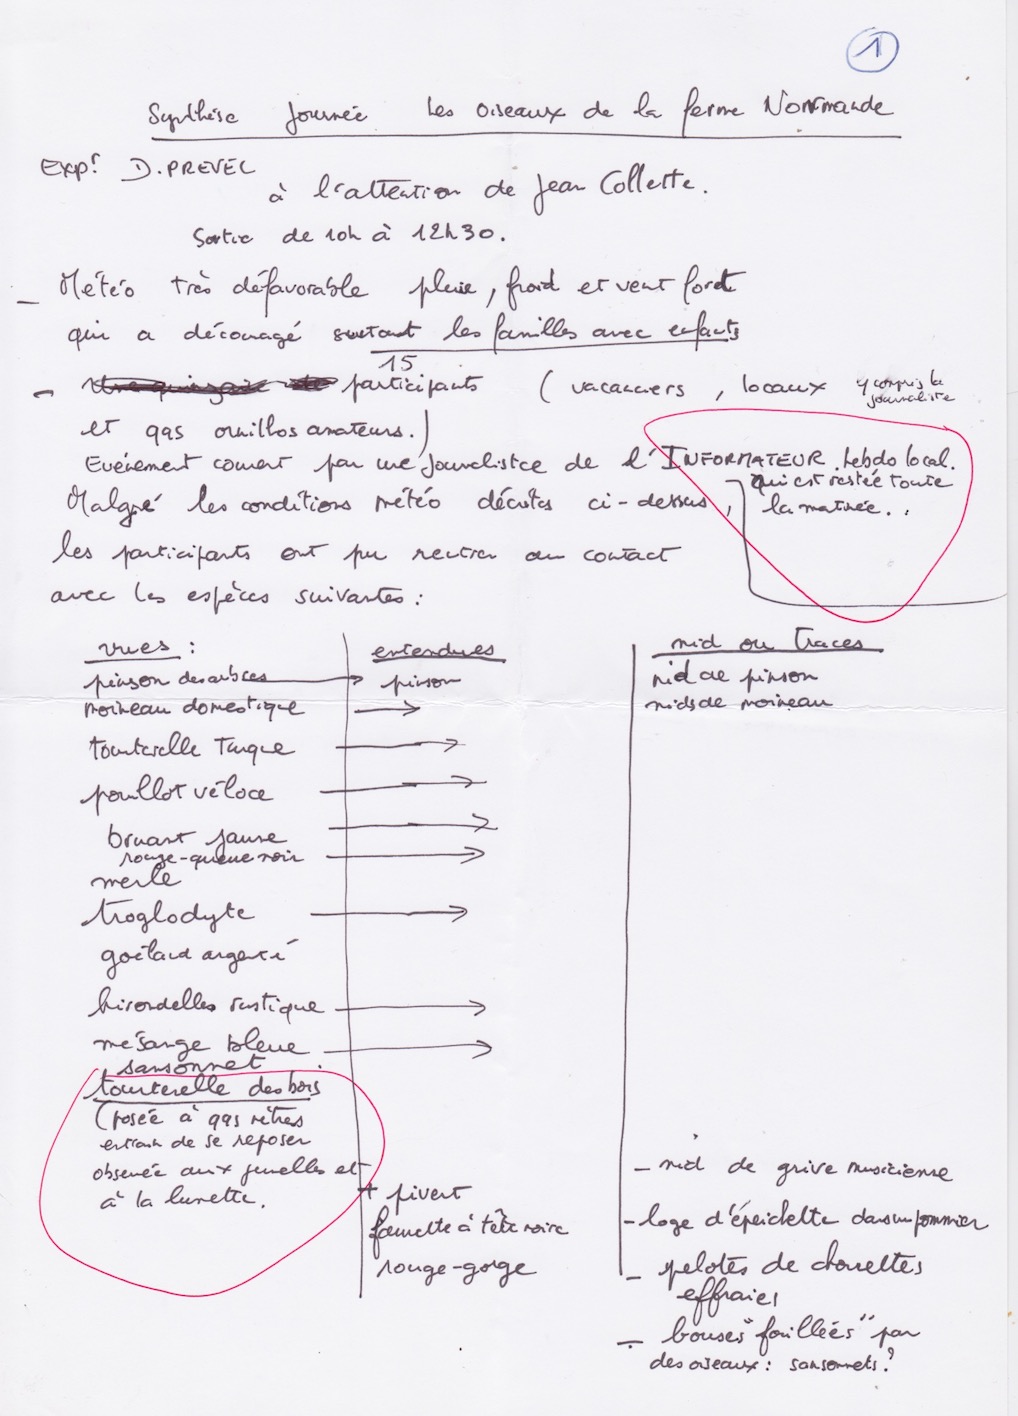 1
Synthèse Journée Les oiseaux de la ferme Normande
Exp! D. PREVEL
à l'attention de Jean Collette.
Sortie de 10h à 12h30.
– Météo très défavorable pluie, froid et vent fort
qui a découragé surtout les familles avec enfants
– 15 participants (vacanciers, locaux y compris la journaliste
et qqs ornithos amateurs.)
Evénement couvert par une journaliste de l'INFORMATEUR. hebdo local.
qui est restée toute
la matinée..
Malgré les conditions météo décrites ci-dessus,
les participants ont pu rentrer au contact
avec les espèces suivantes :
vues : entendues nid ou traces
pinson des arbres → pinson nid de pinson
moineau domestique → nids de moineau
tourterelle turque →
pouillot véloce →
bruant jaune →
rouge-queue noir →
merle
troglodyte →
goëland argenté
hirondelles rustique →
mésange bleue →
sansonnet
tourterelle des bois
(posée à qqs mètres
entrain de se reposer
observée aux jumelles et
à la lunette.
+ pivert
fauvette à tête noire
rouge-gorge
– nid de grive musicienne
– loge d'épeichette dans un pommier
– pelotes de chouettes
effraies
– bouses "fouillées" par
des oiseaux : sansonnets?